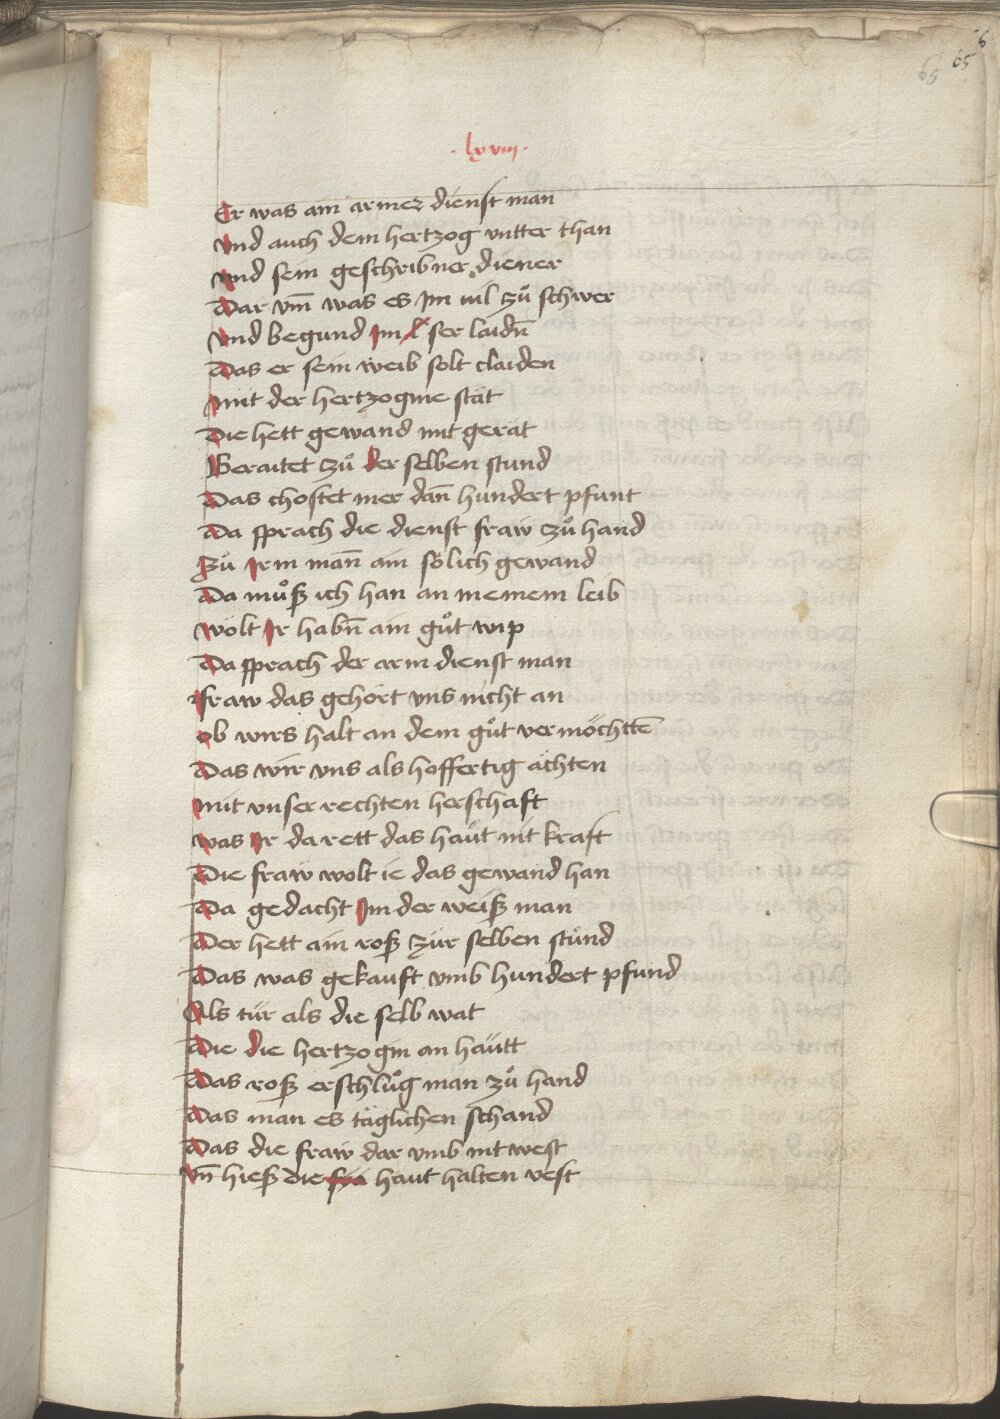 65
65
· lxviij ·
Er was ain armer dienst man
Vnd auch dem hertzog vntter than
Vnd sein geschribner diener
Dar vm̄ was es Im uil zů schwer
Vnd begund Im ser laidn̄
Das er sein weib solt claiden
Mit der hertzogine stät
Die hett gewand mit gerät
Beraitet zů der selben stund
Das chostet mer dan̄ hundert pfunt
Da sprach die dienst fraw zů hand
Zů Irm man̄ ain sölich gewand
Da můß ich han an meinem leib
Wölt Ir habn̄ ain gůt wip
Da sprach der arm dienst man
Fraw das gehört vns nicht an
Ob wirs halt an dem gůt vermöchttē
Das wir vns als hoffertig ächten
Mit vnser rechten herschaft
Was Ir da rett das haüt nit kraft
Die fraw wolt ie das gewand han
Da gedacht Im der weiß man
Der hett ain roß zür selben stünd
Das was gekauft vmb hundert pfund
Als tür als die selb wat
Die die hertzogin an haütt
Das roß erschlůg man zů hand
Das man es täglichen schand
Das die fraw dar vmb nit west
Vn̄ hieß die haut halten vest